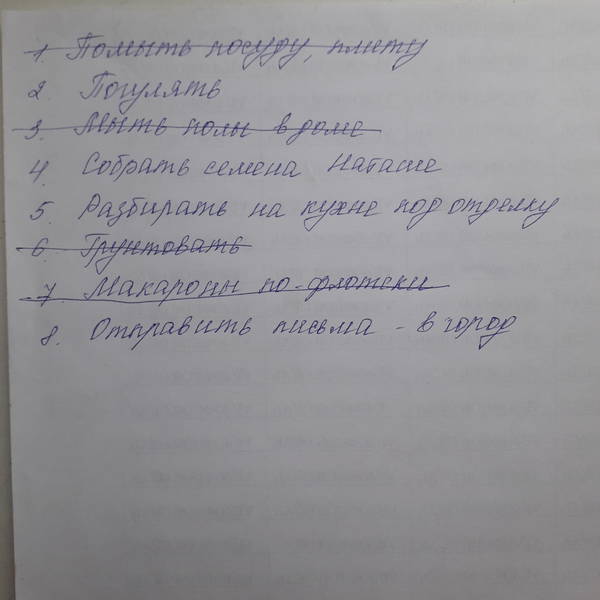 1. Помыть посуду, плиту
2. Погулять
3. Мыть полы в доме
4. Собрать семена Наташе
5. Разбирать на кухне под отделку
6. Грунтовать
7. Макароны по-флотски
8. Отправить письма - в город